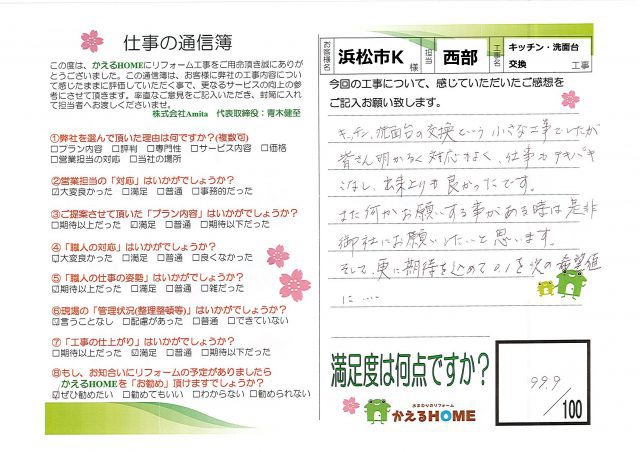 仕事の通信簿
この度は、かえるHOMEにリフォーム工事をご用命頂き誠にありが
とうございました。この通信簿は、お客様に弊社の工事内容につい
て感じたままに評価していただく事で、更なるサービスの向上の参
考にさせて頂きます。率直なご意見をご記入いただき、封筒に入れ
て担当者へお渡しくださいませ。
株式会社Amita 代表取締役：青木健至
①弊社を選んで頂いた理由は何ですか?(複数可)
□プラン内容 □評判 □専門性 □サービス内容 □価格
□営業担当の対応 □当社の場所
②営業担当の「対応」はいかがでしょうか?
☑大変良かった □満足 □普通 □事務的だった
③ご提案させて頂いた「プラン内容」はいかがでしょうか?
□期待以上だった ☑満足 □普通 □期待以下だった
④「職人の対応」はいかがでしょうか?
☑大変良かった □満足 □普通 □良くなかった
⑤「職人の仕事の姿勢」はいかがでしょうか?
☑期待以上だった □満足 □普通 □雑だった
⑥現場の「管理状況(整理整頓等)」はいかがでしょうか?
☑言うことなし □配慮があった □普通 □できていない
⑦「工事の仕上がり」はいかがでしょうか?
□期待以上だった ☑満足 □普通 □期待以下だった
⑧もし、お知合いにリフォームの予定がありましたら
かえるHOMEを「お勧め」頂けますでしょうか?
☑ぜひ勧めたい □勧めてもいい □わからない □勧められない
お客様名 浜松市K 様 担当 西部 工事名 キッチン・洗面台交換 工事
今回の工事について、感じていただいたご感想を
ご記入お願い致します。
キッチン、洗面台の交換という小さな工事でしたが
皆さん明かるく対応もよく、仕事もテキパキ
こなし、出来上りも良かったです。
また何かお願いする事がある時は是非
御社にお願いしたいと思います。
そして、更に期待を込めて0.1を次の希望値
に‥‥
満足度は何点ですか?
99.9/100
水まわりのリフォーム
かえるHOME